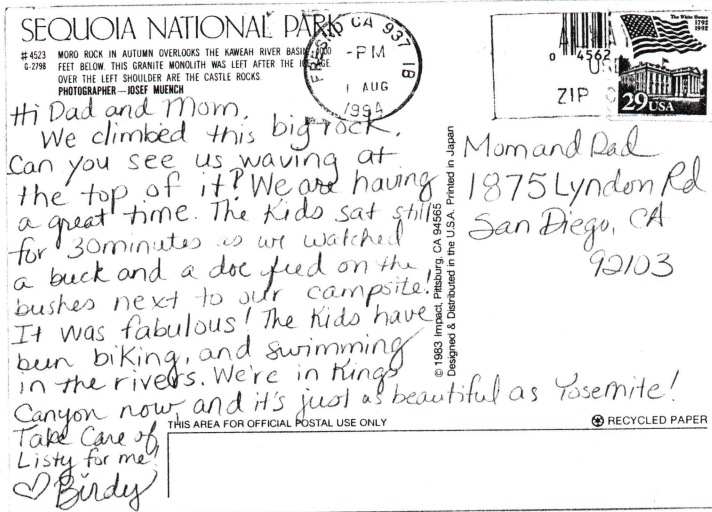 SEQUOIA NATIONAL PARK
#4523 MORO ROCK IN AUTUMN OVERLOOKS THE KAWEAH RIVER
G-2798 FEET BELOW. THIS GRANITE MONOLITH WAS LEFT AFTER THE
OVER THE LEFT SHOULDER ARE THE CASTLE ROCKS.
PHOTOGRAPHER—JOSEF MUENCH
FRESNO CA 937
-PM
1 AUG
1994
1B
0 4562
ZIP
The White House
1792
1992
29 USA
Hi Dad and Mom,
We climbed this big rock.
Can you see us waving at
the top of it? We are having
a great time. The Kids sat still
for 30 minutes as we watched
a buck and a doe feed on the
bushes next to our campsite!
It was fabulous! The Kids have
been biking, and swimming
in the rivers. We're in Kings
Canyon now, and it's just as beautiful as Yosemite!
Take Care of
Listy for me!
♡ Birdy
© 1983 Impact, Pittsburg, CA 94565
Designed & Distributed in the U.S.A. Printed in Japan
Mom and Dad
1875 Lyndon Rd
San Diego, CA
92103
THIS AREA FOR OFFICIAL POSTAL USE ONLY
RECYCLED PAPER